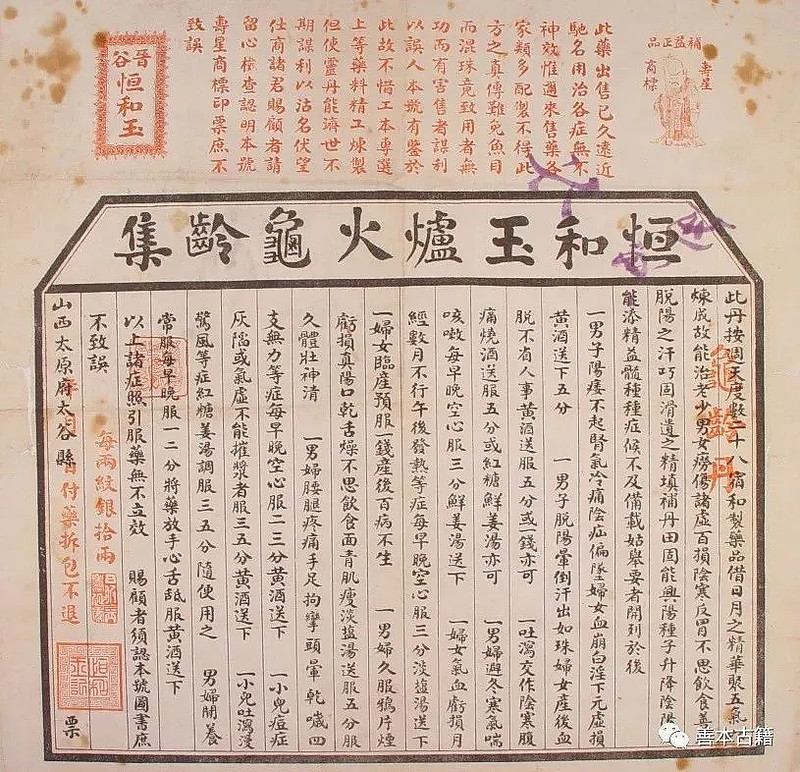 補益正品
壽星
商標
此藥出售已久遠近
馳名用治各症無不
神效惟邇來售藥各
家類多配製不得此
方之真傳難免魚目
而混珠竟致用者無
功而有害售者謀利
以誤人本號有鑒於
此故不惜工本專選
上等藥料精工煉製
但使靈丹能濟世不
期謀利以沽名伏望
仕商諸君賜顧者請
留心檢查認明本號
壽星商標印票庶不
致誤
晉谷
恒和玉
恒和玉爐火龜齡集
此丹按周天度數二十八宿和製藥品借日月之精華聚五氣
煉成故能治老少男女癆傷諸虛百損陰寒反胃不思飲食善
脫陽之汗巧固滑遺之精填補丹田固能興陽種子升降陰陽
能添精益髓種種症候不及備載姑舉要者開列於後
一男子陽痿不起腎氣冷痛陰疝偏墜婦女血崩白淫下元虛損
黃酒送下五分 一男子脫陽暈倒汗出如珠婦女產後血
脫不省人事黃酒送服五分或一錢亦可 一吐瀉交作陰寒腹
痛燒酒送服五分或紅糖鮮姜湯亦可 一男婦避冬寒氣喘
咳嗽每早晚空心服三分鮮姜湯送下 一婦女氣血虧損月
經數月不行午後發熱等症每早晚空心服三分淡鹽湯送下
一婦女臨產預服一錢產後百病不生 一男婦久服鴉片煙
虧損真陽口乾舌燥不思飲食面青肌瘦淡鹽湯送服五分服
久體壯神清 一男婦腰腿疼痛手足拘攣頭暈乾嘔四
支無力等症每早晚空心服二三分黃酒送下 一小兒痘症
灰陷或氣虛不能摧漿者服三五分黃酒送下 一小兒吐瀉漫
驚風等症紅糖姜湯調服三五分隨便用之 男婦閒養
常服每早晚服一二分將藥放手心舌舐服黃酒送下
以上諸症照引服藥無不立效 賜顧者須認本號圖書庶
不致誤
山西太原府太谷縣 票
龜齡丹
每兩紋銀拾兩
付藥拆包不退
善本古籍